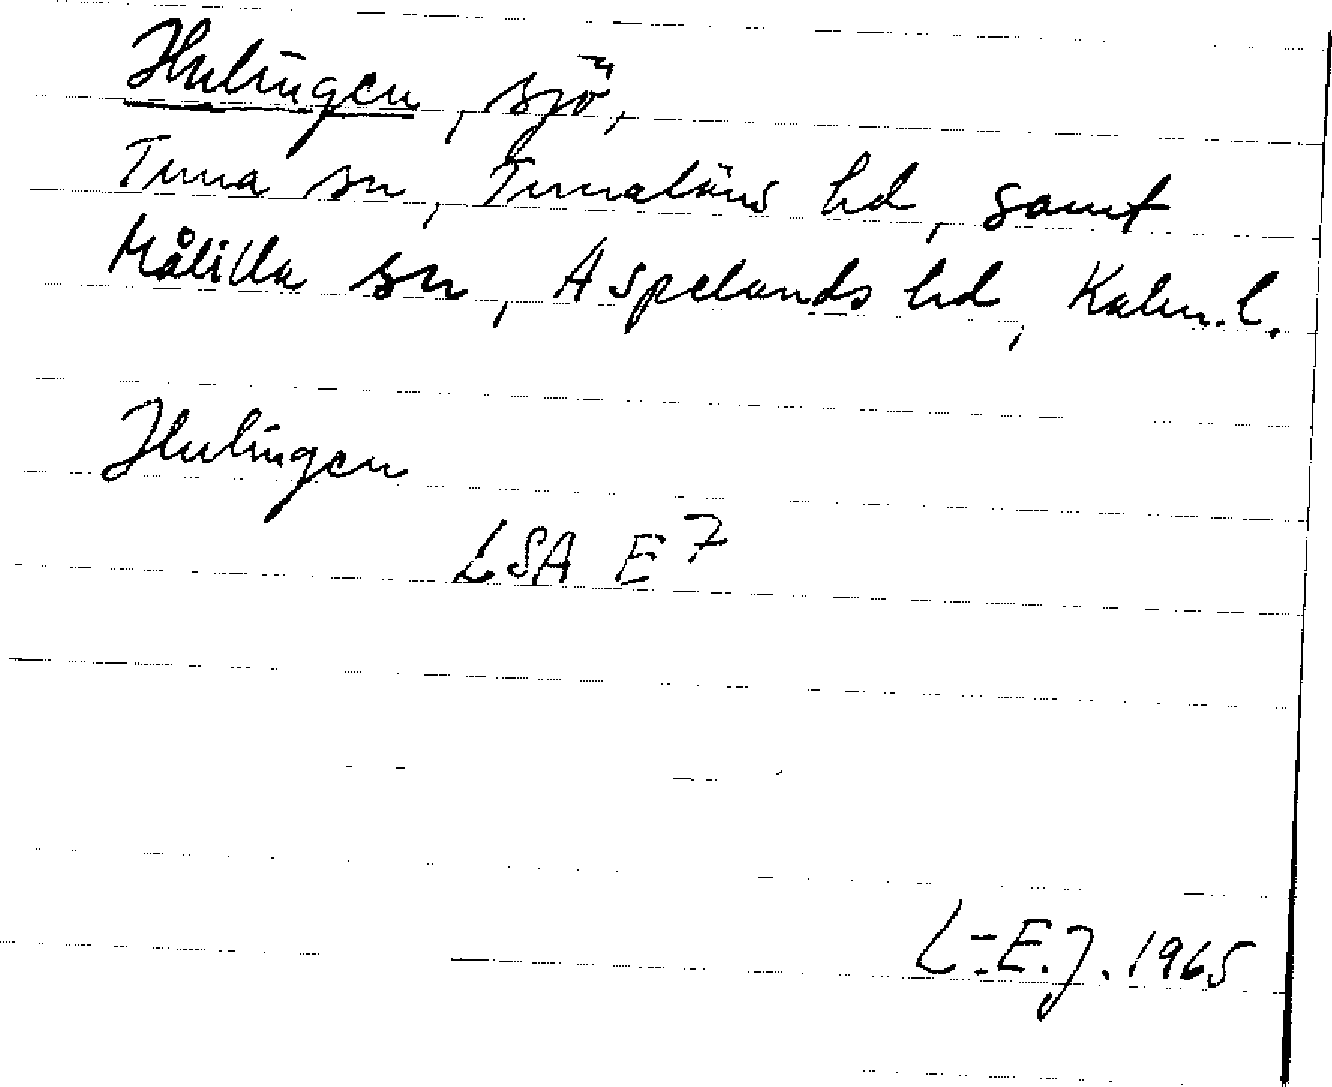 Hulingen, sjö,
Tuna sn, Tunaläns hd, samt
Målilla sn, Aspelands hd, Kalm. l.
Hulingen
LSA E7
L-E.J. 1965